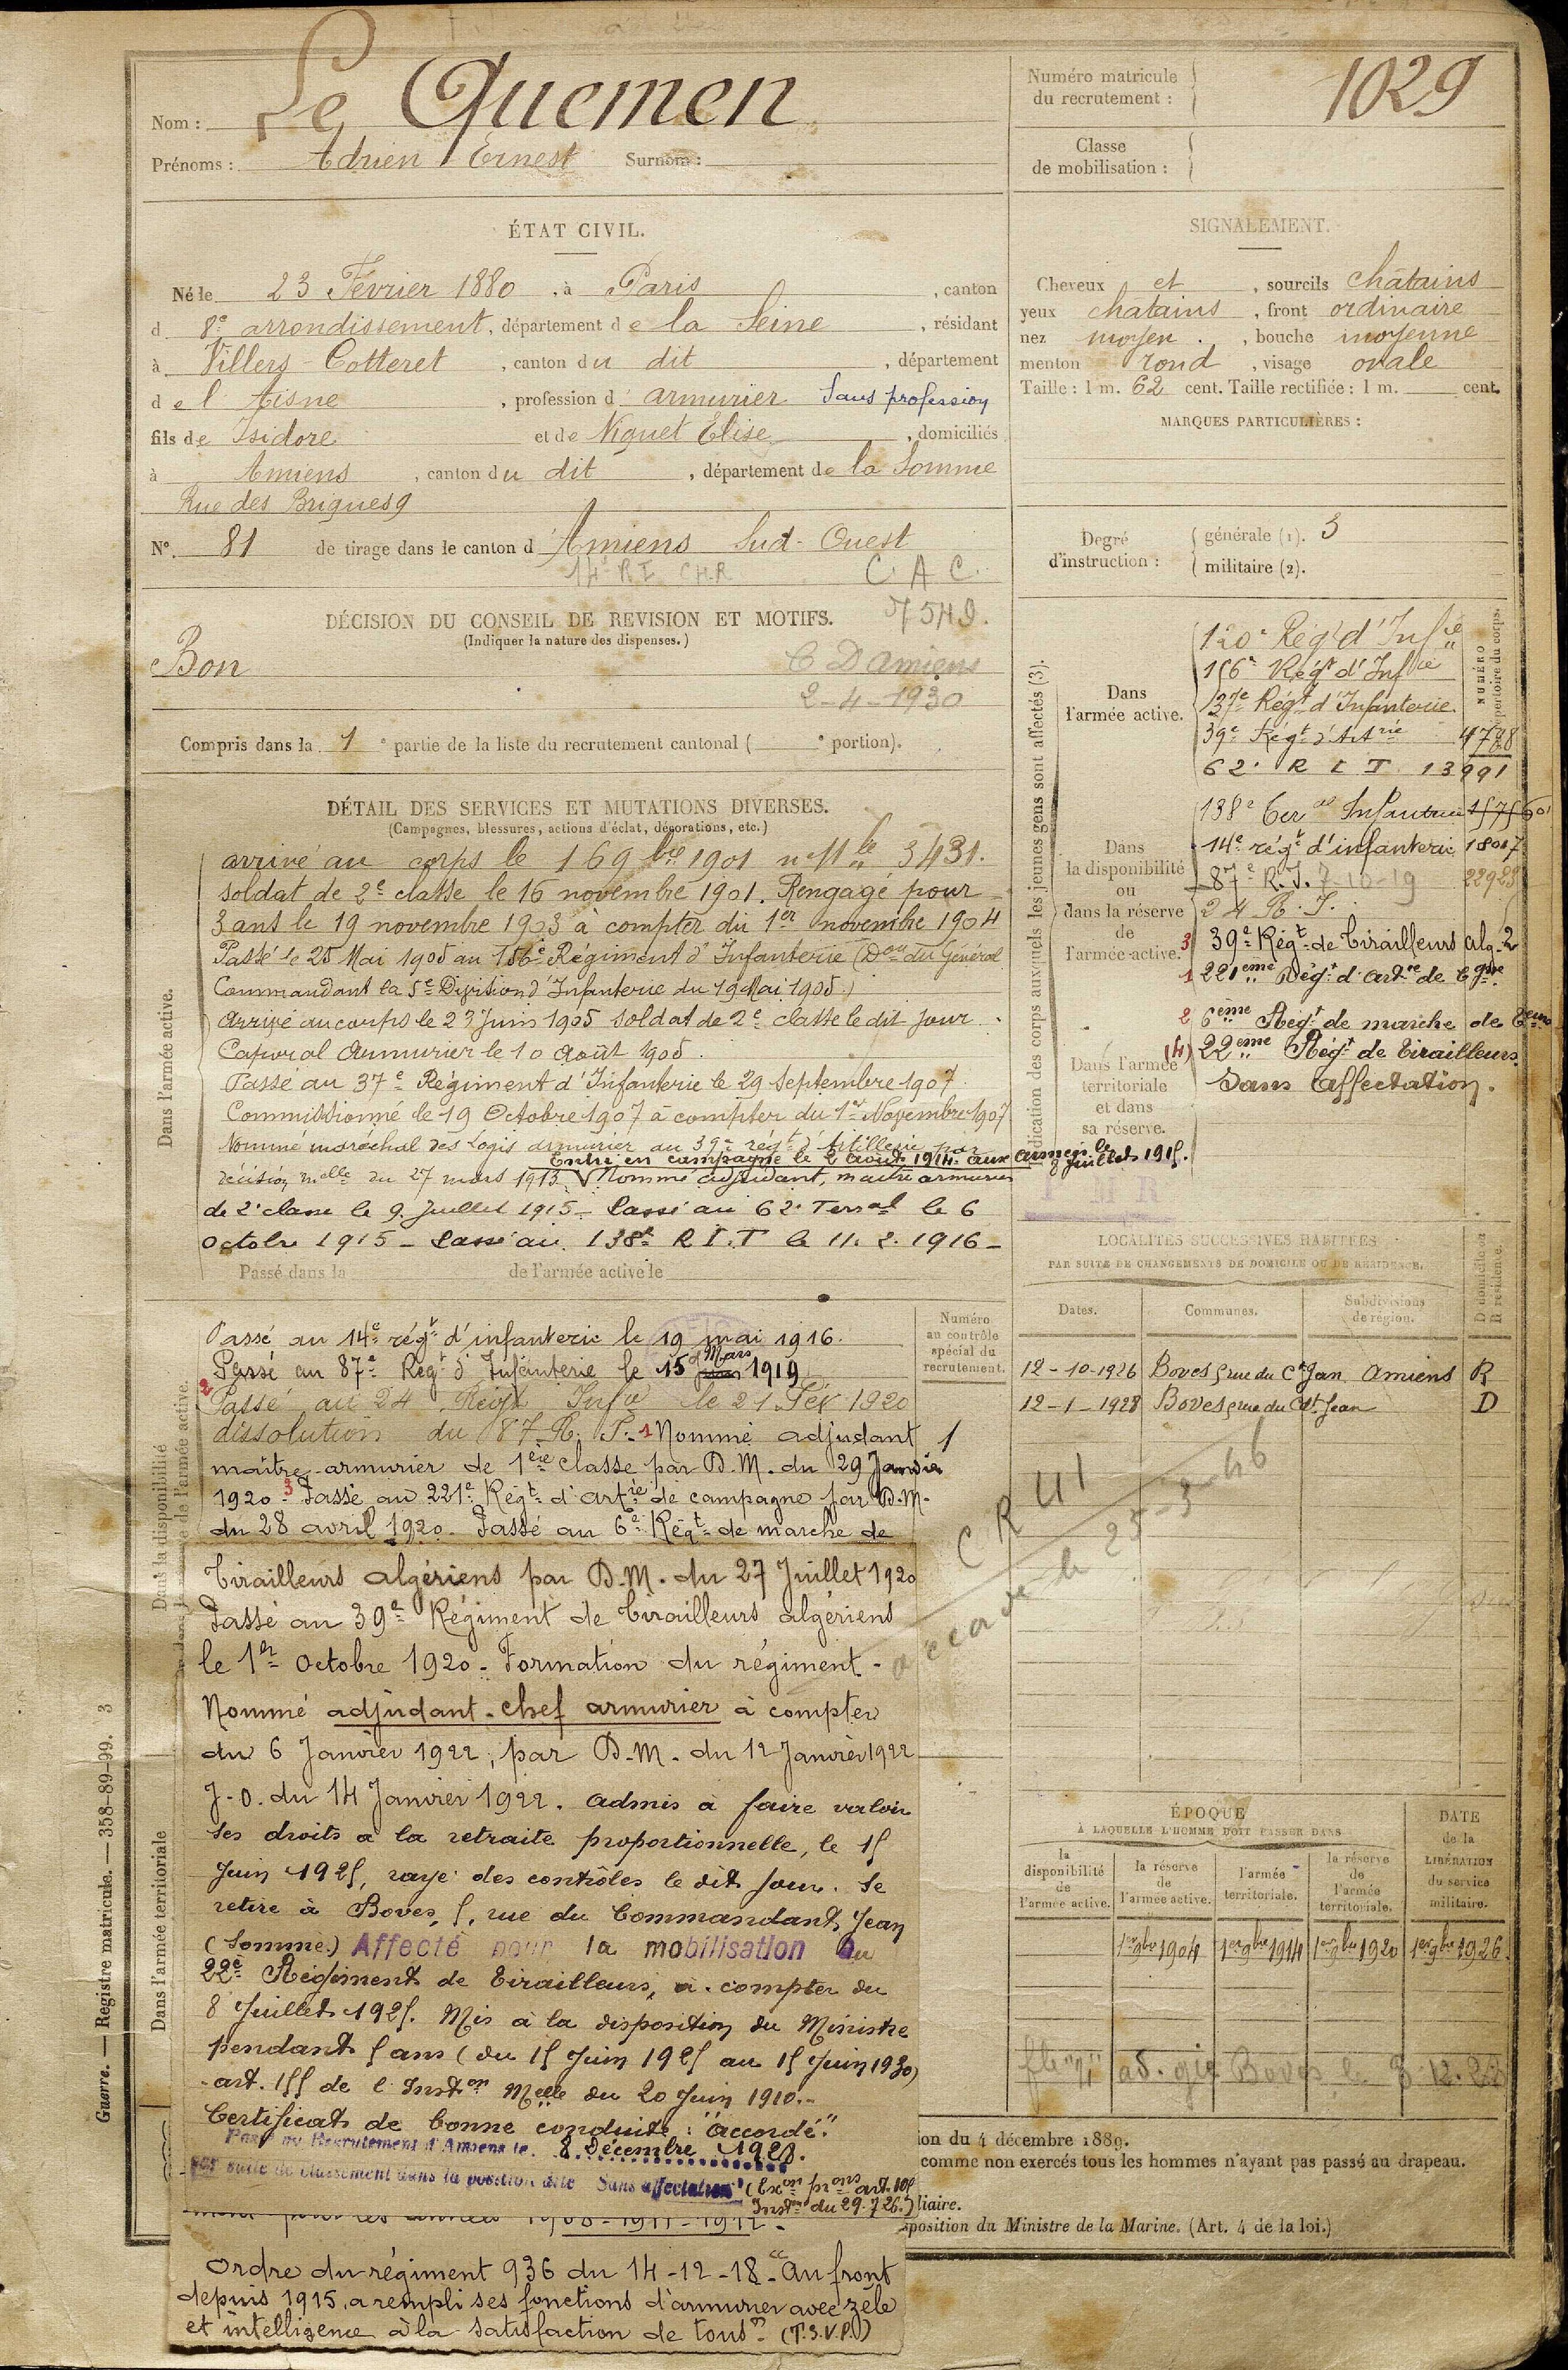 Nom : Le Quemen
Prénoms : Adrien Ernest Surnom :
Numéro matricule du recrutement : 1029
Classe de mobilisation :
ÉTAT CIVIL.
Né le 23 Février 1880, à Paris, canton
d 8e arrondissement, département de la Seine, résidant
à Villers-Cotteret, canton du dit, département
de l Aisne, profession d armurier Sans profession
fils de Isidore et de Viquet Elise, domiciliés
à Amiens, canton du dit, département de la Somme
Rue des Briques 9
N° 81 de tirage dans le canton d Amiens Sud-Ouest
14e RI CHR C. A. C.
SIGNALEMENT.
Cheveux et, sourcils châtains
yeux chatains, front ordinaire
nez moyen., bouche moyenne
menton rond, visage ovale
Taille : 1 m. 62 cent. Taille rectifiée : 1 m. cent.
MARQUES PARTICULIÈRES :
Degré d'instruction :
générale (1). 3
militaire (2).
DÉCISION DU CONSEIL DE REVISION ET MOTIFS.
(Indiquer la nature des dispenses.)
Bon
C D Amiens
2-4-1930
Compris dans la 1e partie de la liste du recrutement cantonal ( e portion).
DÉTAIL DES SERVICES ET MUTATIONS DIVERSES.
(Campagnes, blessures, actions d'éclat, décorations, etc.)
Dans l'armée active.
arrivé au corps le 16 9bre 1901 n° Mle 3431.
soldat de 2e classe le 16 novembre 1901. Rengagé pour
3 ans le 19 novembre 1903 à compter du 1er novembre 1904
Passé le 25 Mai 1905 au 156e Régiment d'Infanterie (Don du Général
Commandant la 5e Division d'Infanterie du 19 Mai 1905.)
Arrivé au corps le 23 Juin 1905 soldat de 2e classe le dit jour.
Caporal Armurier le 10 Août 1905.
Passé au 37e Régiment d'Infanterie le 29 Septembre 1907
Commissionné le 19 Octobre 1907 à compter du 1er Novembre 1907
Nommé maréchal des Logis armurier au 39e régt d'Artillerie par
Entré en campagne le 2 août 1914 aux armées le 8 Juillet 1915.
décision melle du 27 mars 1913 V Nommé adjudant, maître armurier
de 2e classe le 9 Juillet 1915 - Passé au 62e Terral le 6
octobre 1915 - Passé au 138e R.I.T le 11. 2. 1916 -
Passé dans la de l'armée active le
Indication des corps auxquels les jeunes gens sont affectés (3).
NUMÉRO
répertoire du corps.
Dans l'armée active.
120e Régt d'Infie
156e Régt d'Infie
37e Régt d'Infanterie
39e Régt d'Artrie
62e R I T 13991
Dans la disponibilité ou dans la réserve de l'armée active.
138e Ter al Infanterie
14e régt d'infanterie 18017
87e R.I. 7-10-19 22923
24 R. I.
3 39e Régt de Tirailleurs alg. 2
1 221eme Régt d'artie de Cgne
2 6ème Régt de marche de
(4) 22eme Régt de Tirailleurs
Dans l'armée territoriale et dans sa réserve.
Sans affectation.
LOCALITÉS SUCCESSIVES HABITÉES
PAR SUITE DE CHANGEMENTS DE DOMICILE OU DE RÉSIDENCE.
Dates. Communes. Subdivisions de région. D domicile ou R résidence.
12-10-1926 Boves 5 rue du Ct Jean Amiens R
12-1-1928 Boves 5 rue du Ct Jean D
Numéro au contrôle spécial du recrutement.
1
Dans la disponibilité
Passé au 14e régt d'infanterie le 19 mai 1916.
Passé au 87e Régt d'Infanterie le 15 Mars 1919
2 Passé au 24 Régt Infie le 21 Fév 1920
dissolution du 87 R. I. - 1 Nommé adjudant
maître-armurier de 1ère classe par D.M. du 29 Janvier
1920 - 3 Passé au 221e Régt d'artie de campagne par D.M.
du 28 avril 1920. Passé au 6e Régt de marche de
Tirailleurs algériens par D.M. du 27 Juillet 1920
Passé au 39e Régiment de Tirailleurs algériens
le 1er Octobre 1920 - Formation du régiment -
Nommé adjudant-chef armurier à compter
du 6 Janvier 1922, par D.M. du 12 Janvier 1922
J.O. du 14 Janvier 1922. admis à faire valoir
ses droits à la retraite proportionnelle, le 15
Juin 1925, rayé des contrôles le dit jour. Se
retire à Boves, 5, rue du Commandant Jean
(Somme.) Affecté pour la mobilisation au
22e Régiment de Tirailleurs, à compter du
8 Juillet 1925. Mis à la disposition du Ministre
pendant 5 ans (du 15 Juin 1925 au 15 Juin 1930)
art. 155 de l'Inston Melle du 20 Juin 1910.-
Certificat de bonne conduite : "accordé."
Passé au Recrutement d'Amiens le 8 Décembre 1928.
par suite de classement dans la position dite Sans affectation
Inston du 29-7-26.)
1908-1911-1912-
Ordre du régiment 936 du 14-12-18 - "Au front
depuis 1915, a rempli ses fonctions d'armurier avec zèle
et intelligence à la satisfaction de tous" (T.S.V.P.)
C R 41
25-3-46
ÉPOQUE
À LAQUELLE L'HOMME DOIT PASSER DANS
la disponibilité de l'armée active.
la réserve de l'armée active.
l'armée territoriale.
la réserve de l'armée territoriale.
DATE de la LIBÉRATION du service militaire.
1er 9bre 1904 1er 9bre 1914 1er 9bre 1920 1er 9bre 1926.
Boves le 8-12-28
ion du 4 décembre 1889.
comme non exercés tous les hommes n'ayant pas passé au drapeau.
liaire.
sposition du Ministre de la Marine. (Art. 4 de la loi.)
Dans l'armée territoriale
Guerre. — Registre matricule. — 358-89-99. 3